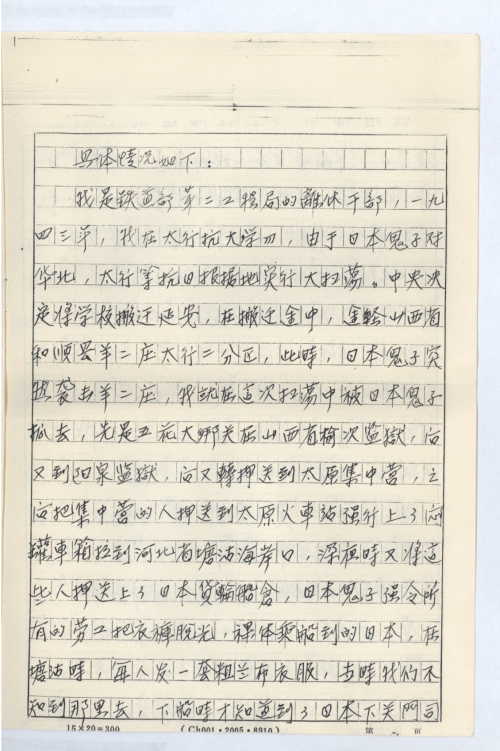 具体情况如下：
我是铁道部第二工程局的離休干部，一九
四三年，我在太行抗大学习，由于日本鬼子对
华北，太行等抗日根据地实行大扫荡。中央决
定将学校搬迁延安，在搬迁途中，途经山西省
和顺县羊二庄太行二分区，此時，日本鬼子突
然袭击羊二庄，我就在这次扫荡中被日本鬼子
抓去，先是五花大绑关在山西省榆次监獄，后
又到阳泉监獄，后又轉押送到太原集中营，之
后把集中营的人押送到太原火車站强行上了闷
罐車箱拉到河北省塘沽海岸口，深夜時又将这
些人押送上了日本貨輪船舱，日本鬼子强令所
有的劳工把衣褲脱光，裸体乘船到的日本，在
塘沽時，每人发一套粗兰布衣服，当時我们不
知到那里去，下船時才知道到了日本下关門司
15×20=300 (Ch001·2005·8910) 第 页